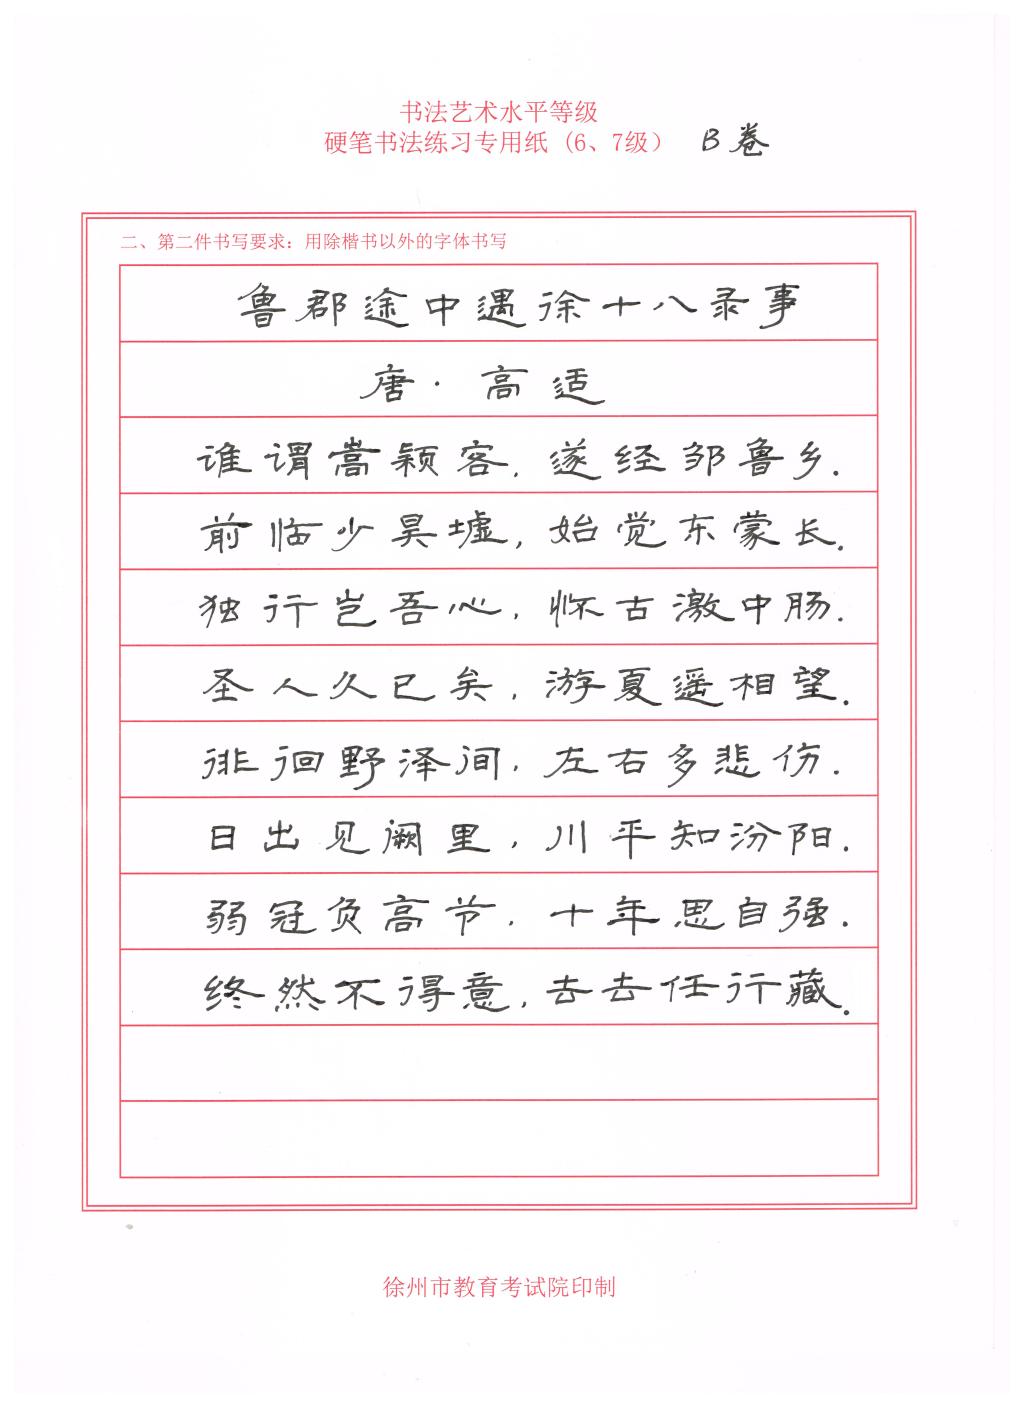 书法艺术水平等级
硬笔书法练习专用纸（6、7级） B卷
二、第二件书写要求：用除楷书以外的字体书写
鲁郡途中遇徐十八录事
唐·高适
谁谓嵩颖客，遂经邹鲁乡．
前临少昊墟，始觉东蒙长．
独行岂吾心，怀古激中肠．
圣人久已矣，游夏遥相望．
徘徊野泽间，左右多悲伤．
日出见阙里，川平知汾阳．
弱冠负高节，十年思自强．
终然不得意，去去任行藏．
徐州市教育考试院印制